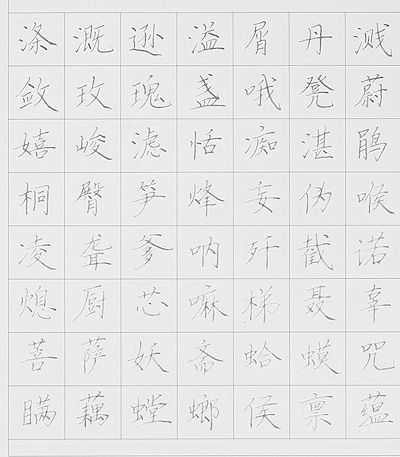 涤溉逊溢屑丹溅
敛玫瑰盏哦凳蔚
嬉峻滤恬痴湛鹃
桐臀笋烽妄伪喉
凌聋爹呐歼截诺
熄厨芯嘛梯聂辜
菩萨妖斋蛤蟆咒
瞒藕螳螂侯禀蕴